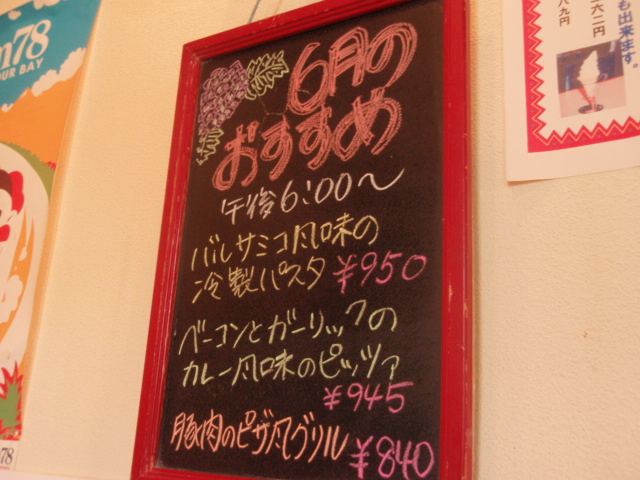 m78
OUR BAY
6月の
おすすめ
午後6:00〜
バルサミコ風味の
冷製パスタ ¥950
ベーコンとガーリックの
カレー風味のピッツァ
¥945
豚肉のピザ風グリル ¥840
も出来ます。
六二円
八九円
78